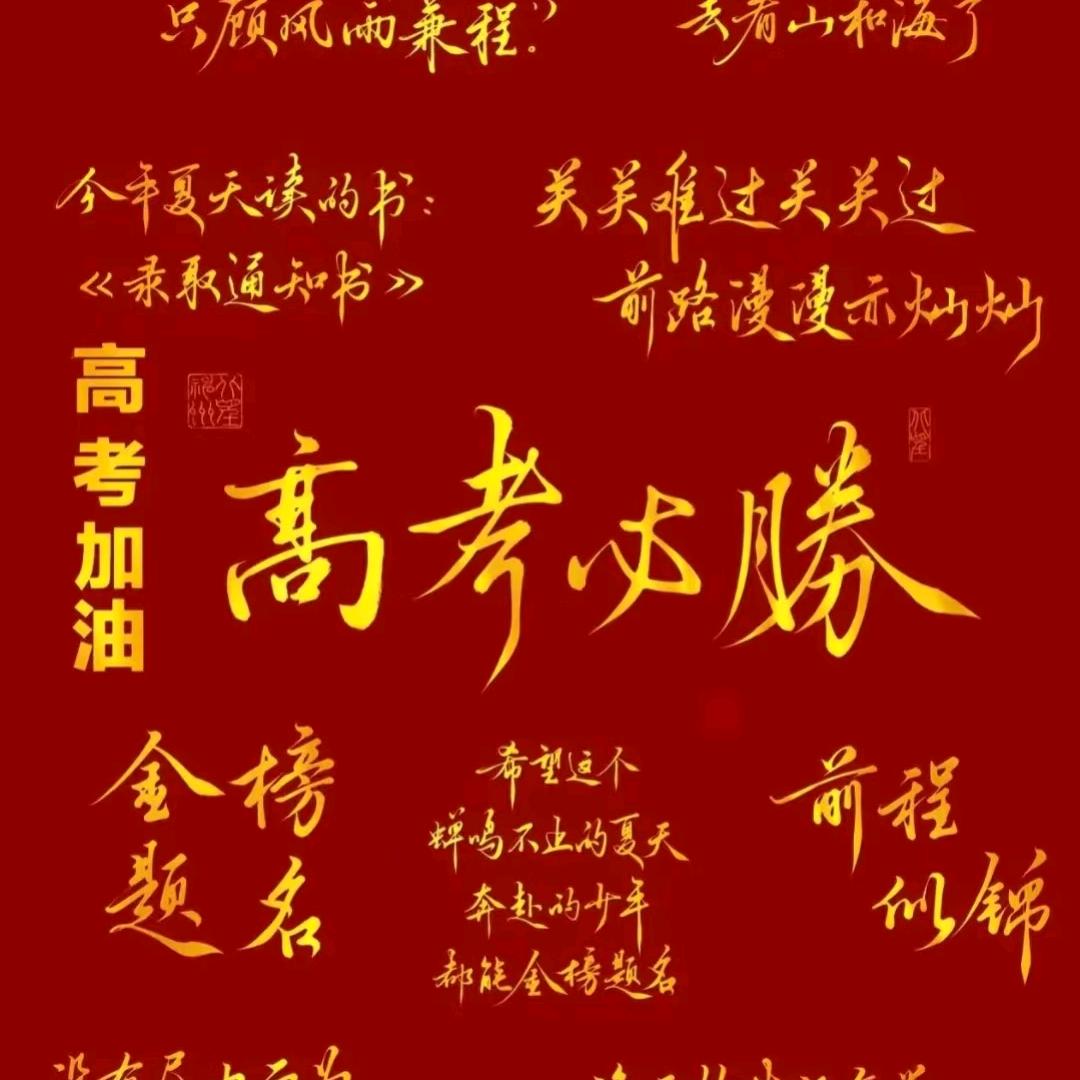 只顾风雨兼程。
去看山和海了
今年夏天读的书：
《录取通知书》
关关难过关关过
前路漫漫亦灿灿
高考加油
高考必勝
金榜
题名
希望这个
蝉鸣不止的夏天
奔赴的少年
都能金榜题名
前程
似锦